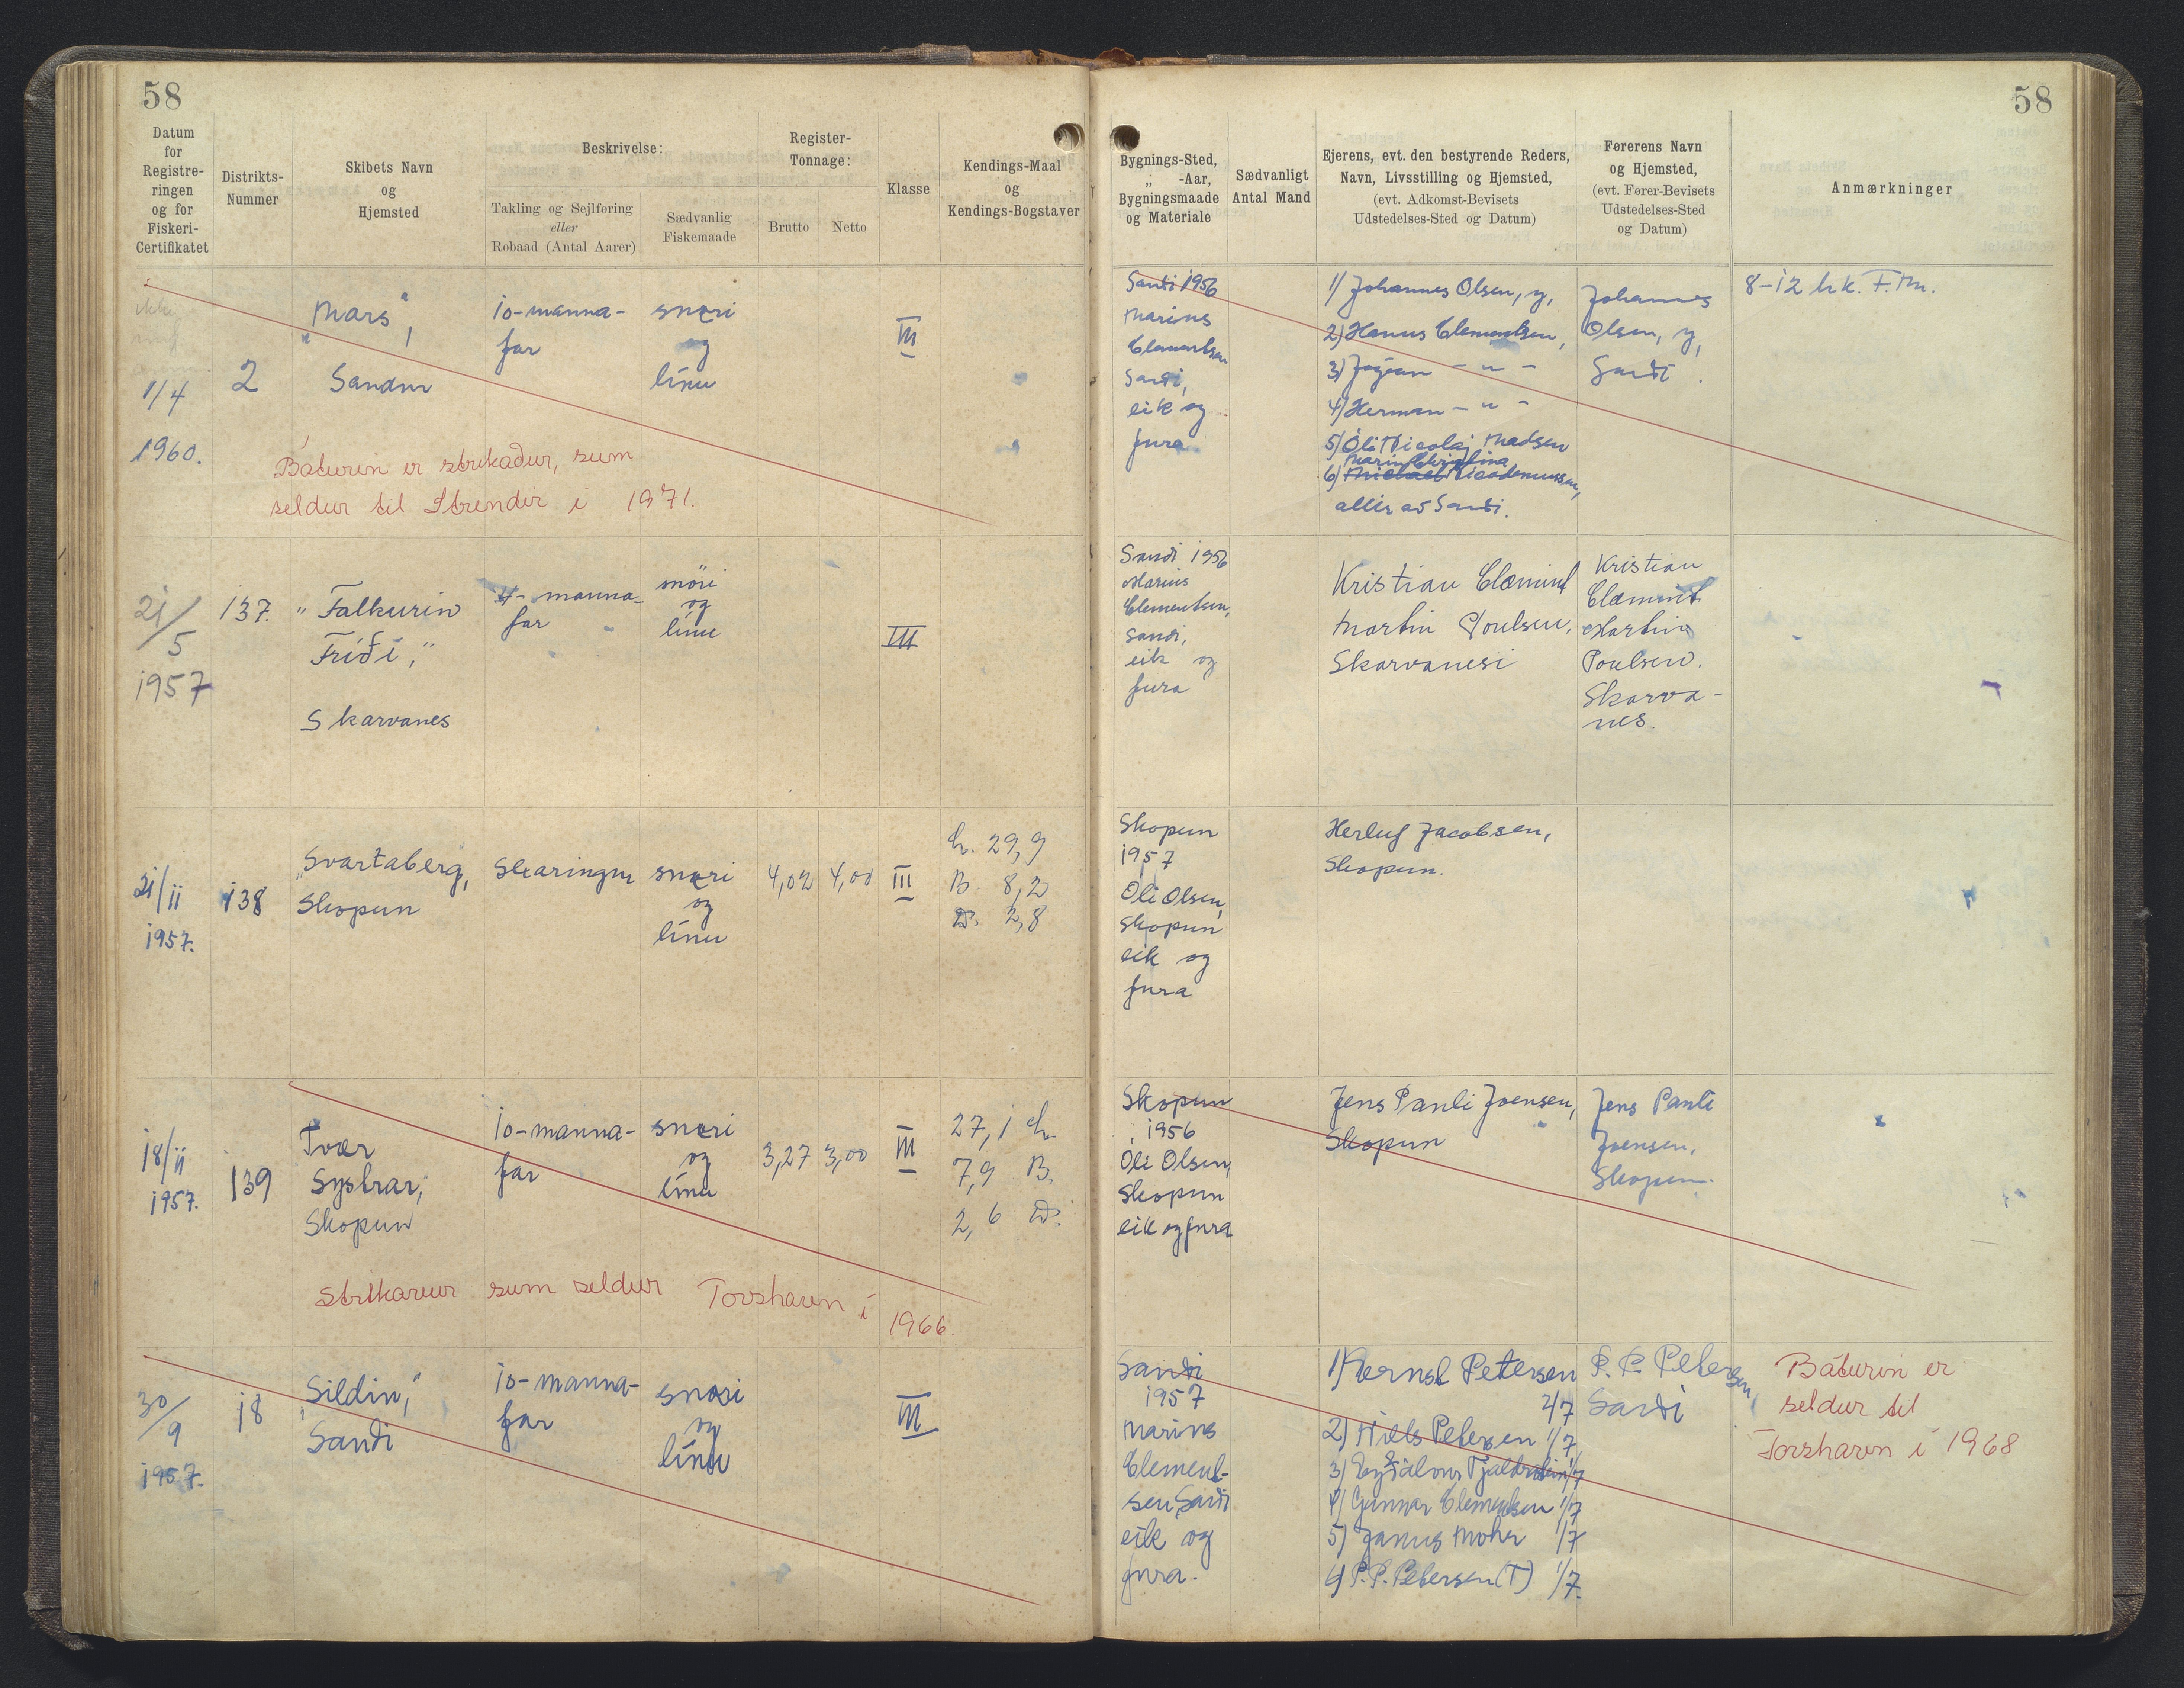 58
58
Datum
for
Registre-
ringen
og for
Fiskeri-
Certifikatet
Distrikts-
Nummer
Skibets Navn
og
Hjemsted
Beskrivelse:
Takling og Sejlføring
eller
Robaad (Antal Aarer)
Sædvanlig
Fiskemaade
Register-
Tonnage:
Brutto
Netto
Klasse
Kendings-Maal
og
Kendings-Bogstaver
Bygnings-Sted,
„ -Aar,
Bygningsmaade
og Materiale
Sædvanligt
Antal Mand
Ejerens, evt. den bestyrende Reders,
Navn, Livsstilling og Hjemsted,
(evt. Adkomst-Bevisets
Udstedelses-Sted og Datum)
Førerens Navn
og Hjemsted,
(evt. Fører-Bevisets
Udstedelses-Sted
og Datum)
Anmærkninger
1/4
1960.
2
"Mars",
Sandur
10-manna-
far
snøri
og
línu
III
Báturin er strikaður, sum
seldur til Strendir í 1971.
Sandi 1956
Marius
Clementsen
Sandi,
eik og
fura
1) Johannes Olsen, y,
2) Hanus Clementsen,
3) Jógvan - " -
4) Herman - " -
5) Óli Nicolaj Madsen
Marin Christina
6) Michael Nicodemussen,
allir av Sandi.
Johannes
Olsen, y,
Sandi.
8-12 hk. F.M.
21/5
1957
137.
"Falkurin
Fríði,"
Skarvanes
4-manna-
far
snöri
og
línu
III
Sandi 1956
Marius
Clementsen,
Sandi,
eik og
fura
Kristian Clæmint
Martin Poulsen,
Skarvanesi
Kristian
Clæmint
Martin
Poulsen.
Skarva-
nes.
21/11
1957.
138
"Svartaberg,
Skopun
Skaringur
snøri
og
línu
4,02
4,00
III
L. 29,9
B. 8,2
D. 2,8
Skopun
1957
Óli Olsen,
Skopun
eik og
fura
Herluf Jacobsen,
Skopun.
18/11
1957.
139
Tvær
Systrar,
Skopun
10-manna-
far
snøri
og
línu
3,27
3,00
III
27,1 L.
7,9 B.
2,6 D.
strikavur sum seldur Torshavn í
1966.
Skopun
1956
Óli Olsen,
Skopun
eik og fura
Jens Pauli Joensen,
Skopun
Jens Pauli
Joensen,
Skopun.
30/9
1957.
18
"Sildin,"
Sandi
10-manna-
far
snøri
og
línu
III
Sandi
1957
Marius
Clement-
sen, Sandi
eik og
fura.
1) Petersen
2/7
2) Niels Petersen 1/7,
3) 1/7
4) Gunnar Clementsen 1/7
5) Janus Mohr 1/7
6) P.P. Petersen (T) 1/7.
P. P. Petersen,
Sandi
Báturin er
seldur til
Torshavn í 1968